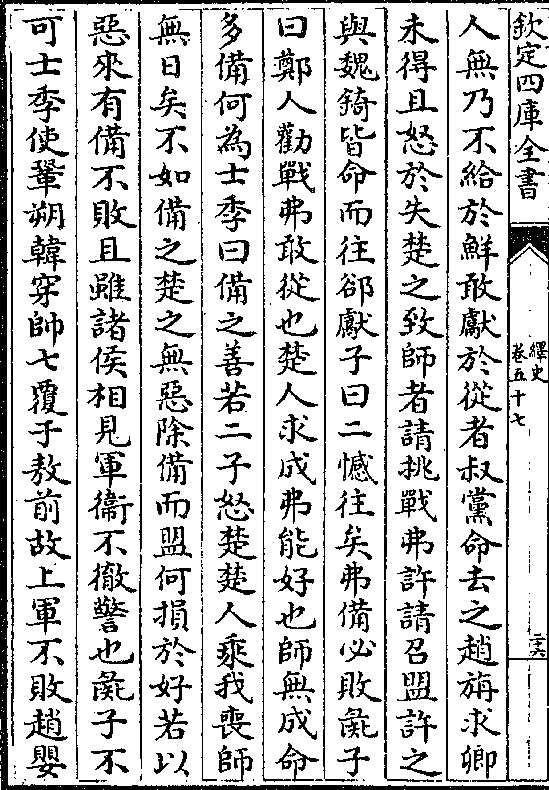 欽定四庫全書
繹史
卷五十七
二六
人無乃不給於鮮敢獻於從者叔黨命去之趙旃求卿
未得且怒於失楚之致師者請挑戰弗許請召盟許之
與魏錡皆命而往郤獻子曰二憾往矣弗備必敗彘子
曰鄭人勸戰弗敢從也楚人求成弗能好也師無成命
多備何為士季曰備之善若二子怒楚楚人乘我喪師
無日矣不如備之楚之無惡除備而盟何損於好若以
惡來有備不敗且雖諸侯相見軍衞不徹警也彘子不
可士季使鞏朔韓穿帥七覆于敖前故上軍不敗趙嬰